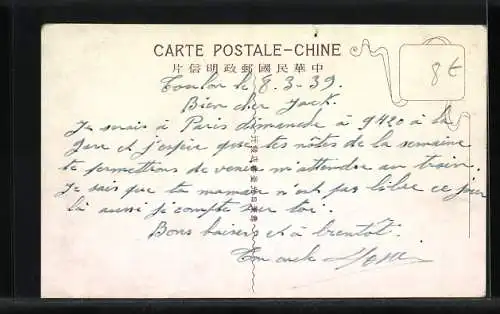 CARTE POSTALE-CHINE
片信明政郵國民華中
8t
Toulon le 8.3-39.
Bien cher Jack.
Je serais à Paris dimanche à 9h20 à la
gare et j'espère que tes notes de la semaine
te permettrons de venir m'attendre au train.
Je sais que ta maman n'est pas libre ce jour
là aussi je compte sur toi.
Bons baisers et à bientôt.
Ton oncle